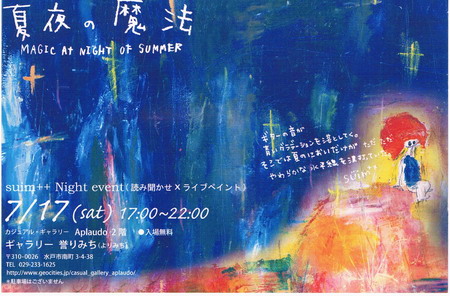 夏夜の魔法
MAGIC AT NIGHT OF SUMMER
ギターの音が
青いグラデーションを落としてく。
そこでは夏のにおいだけが ただ ただ
やわらかな水平線を決めていた。
suim++
suim++ Night event (読み聞かせ×ライブペイント)
7/17 (sat) 17:00~22:00
カジュアル・ギャラリー Aplaudo 2階 ●入場無料
ギャラリー 誉りみち(よりみち)
〒310-0026 水戸市南町 3-4-38
TEL 029-233-1625
http://www.geocities.jp/casual_gallery_aplaudo/
*駐車場はございません